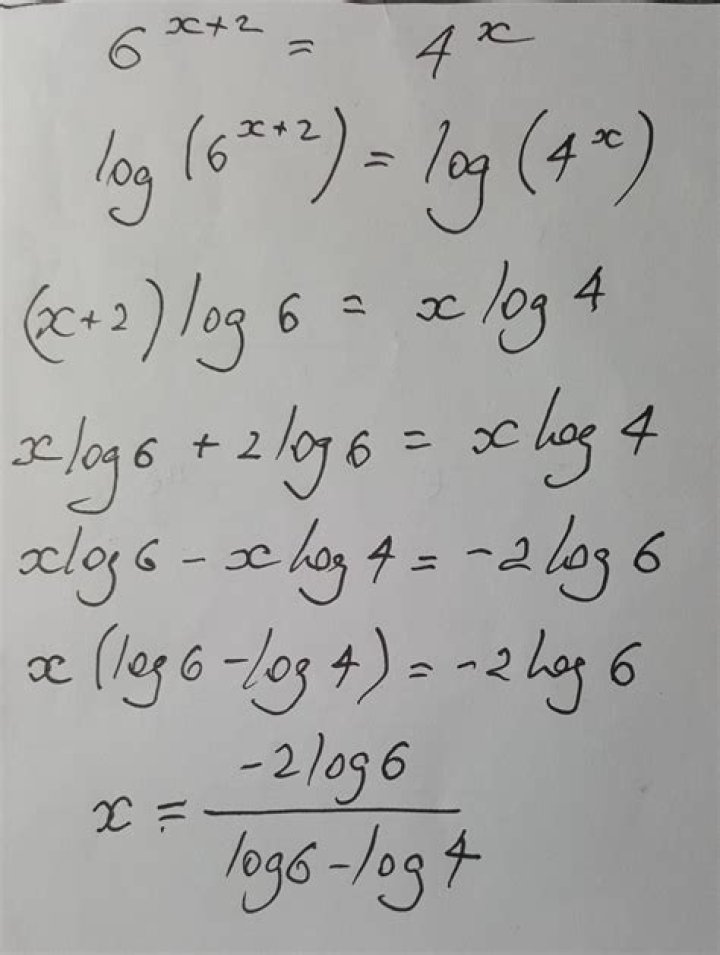 6^{x+2} = 4^x
log (6^{x+2}) = log (4^x)
(x+2) log 6 = x log 4
x log 6 + 2 log 6 = x log 4
x log 6 - x log 4 = -2 log 6
x (log 6 - log 4) = -2 log 6
x = \frac{-2 log 6}{log 6 - log 4}